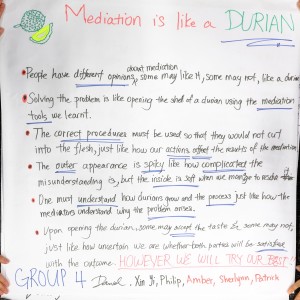 Mediation is like a DURIAN
about mediation
People have different opinions, some may like it, some may not, like a durian
Solving the problem is like opening the shell of a durian using the mediation
tools we learnt.
The correct procedures must be used so that they would not cut
into the flesh, just like how our actions affect the results of the mediation
The outer appearance is spiky like how complicated the
misunderstanding is, but the inside is soft when we manage to resolve it
One must understand how durians grow and the process just like how the
mediators understand why the problem arises.
Upon opening the durian, some may accept the taste & some may not,
just like how uncertain we are whether both parties will be satisfied
with the outcome. HOWEVER WE WILL TRY OUR BEST!
GROUP 4 Daniel, Xin Yi, Philip, Amber, Sherlynn, Patrick